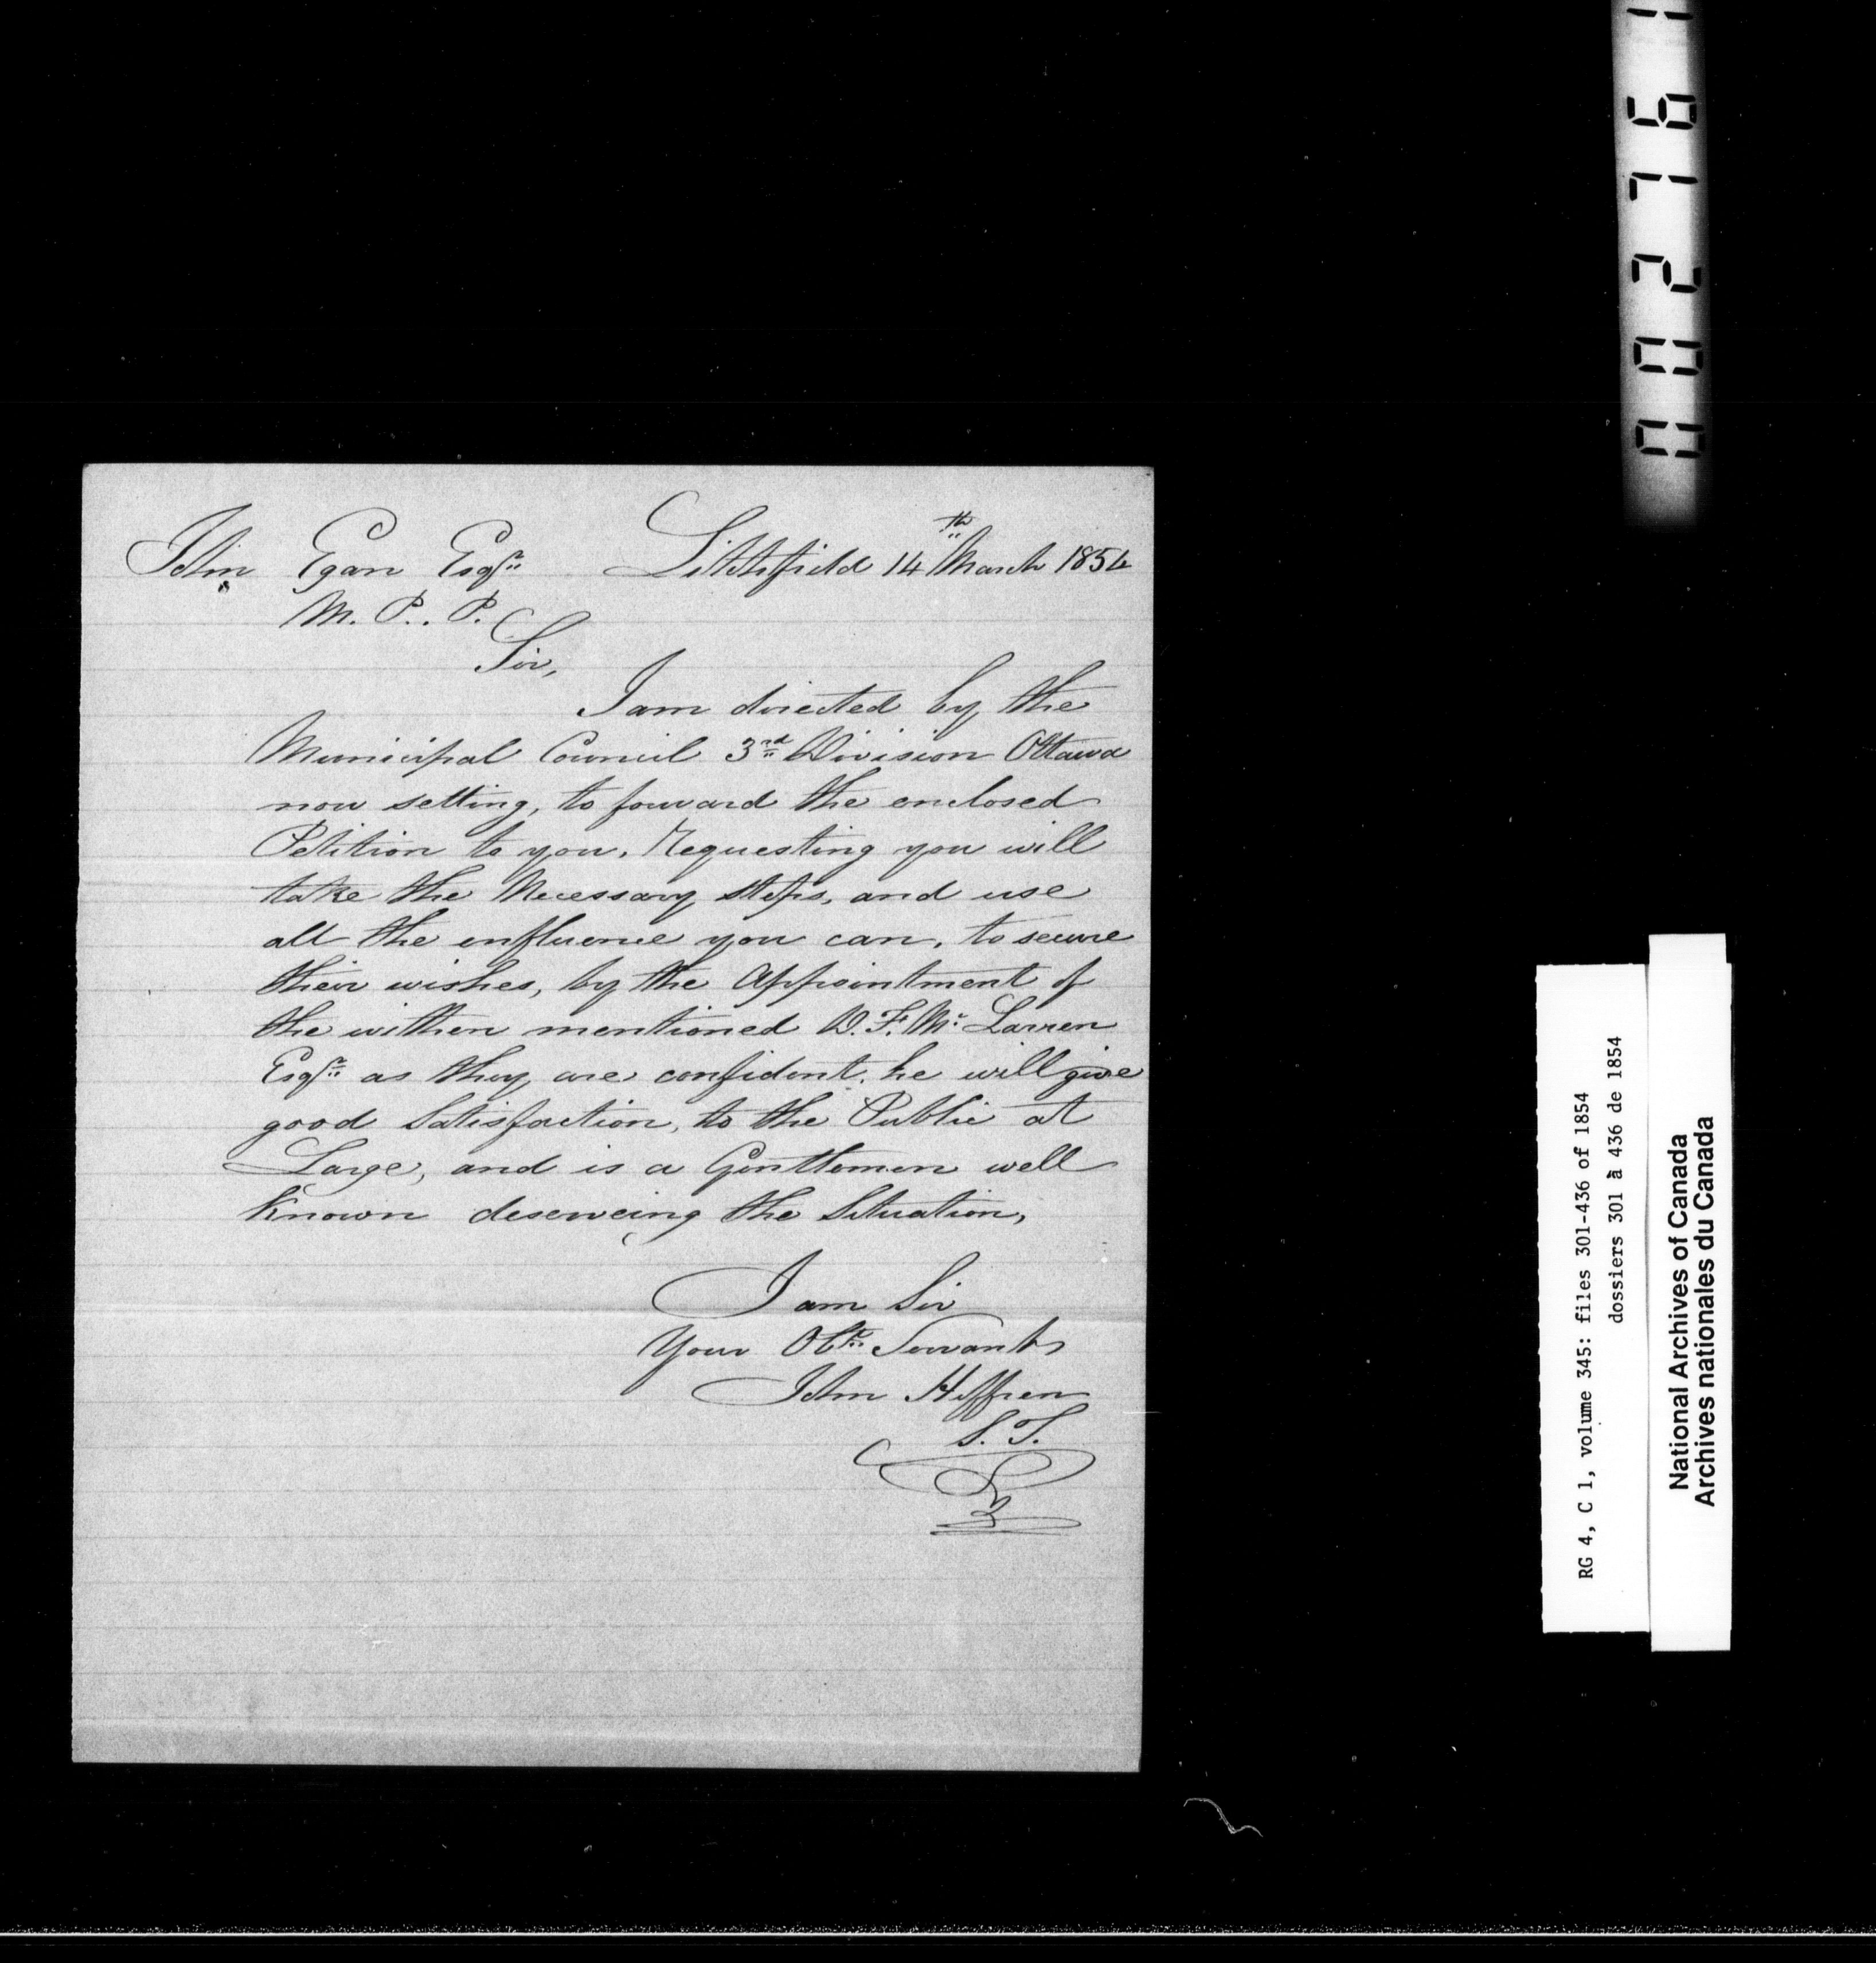 John Egan Esqr. Litchfield 14th March 1854
M. P. P.
Sir,
I am directed by the
Municipal Council 3rd Division Ottawa
now setting, to forward the enclosed
Petition to you, Requesting you will
take the Necessary steps, and use
all the enfluence you can, to secure
their wishes, by the Appointment of
the withen mentioned D. F. Mc Larren
Esqr. as they are confident, he will give
good Satisfaction, to the Public at
Large, and is a Gentleman well
Known deserveing the Situation,
I am Sir
Your Obt. Servant
John Heffren
S. T.
002761
RG 4, C 1, volume 345: files 301-436 of 1854
dossiers 301 à 436 de 1854
National Archives of Canada
Archives nationales du Canada